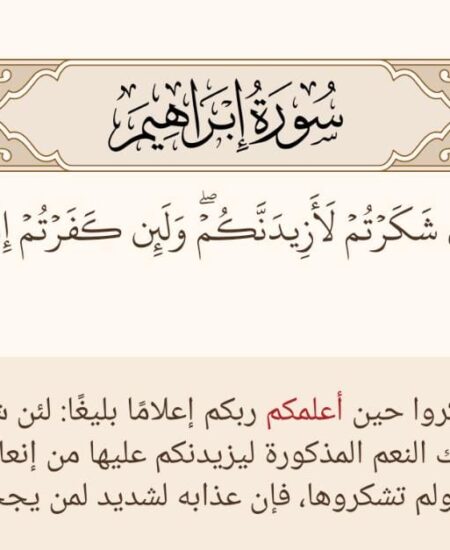 سُورَةُ إِبْرَاهِيمَ
شَكَرْتُمْ لَأَزِيدَنَّكُمْ ۖ وَلَئِن كَفَرْتُمْ
حين أعلمكم ربكم إعلامًا بليغًا: لئن
النعم المذكورة ليزيدنكم عليها من
ولم تشكروها، فإن عذابه لشديد لمن